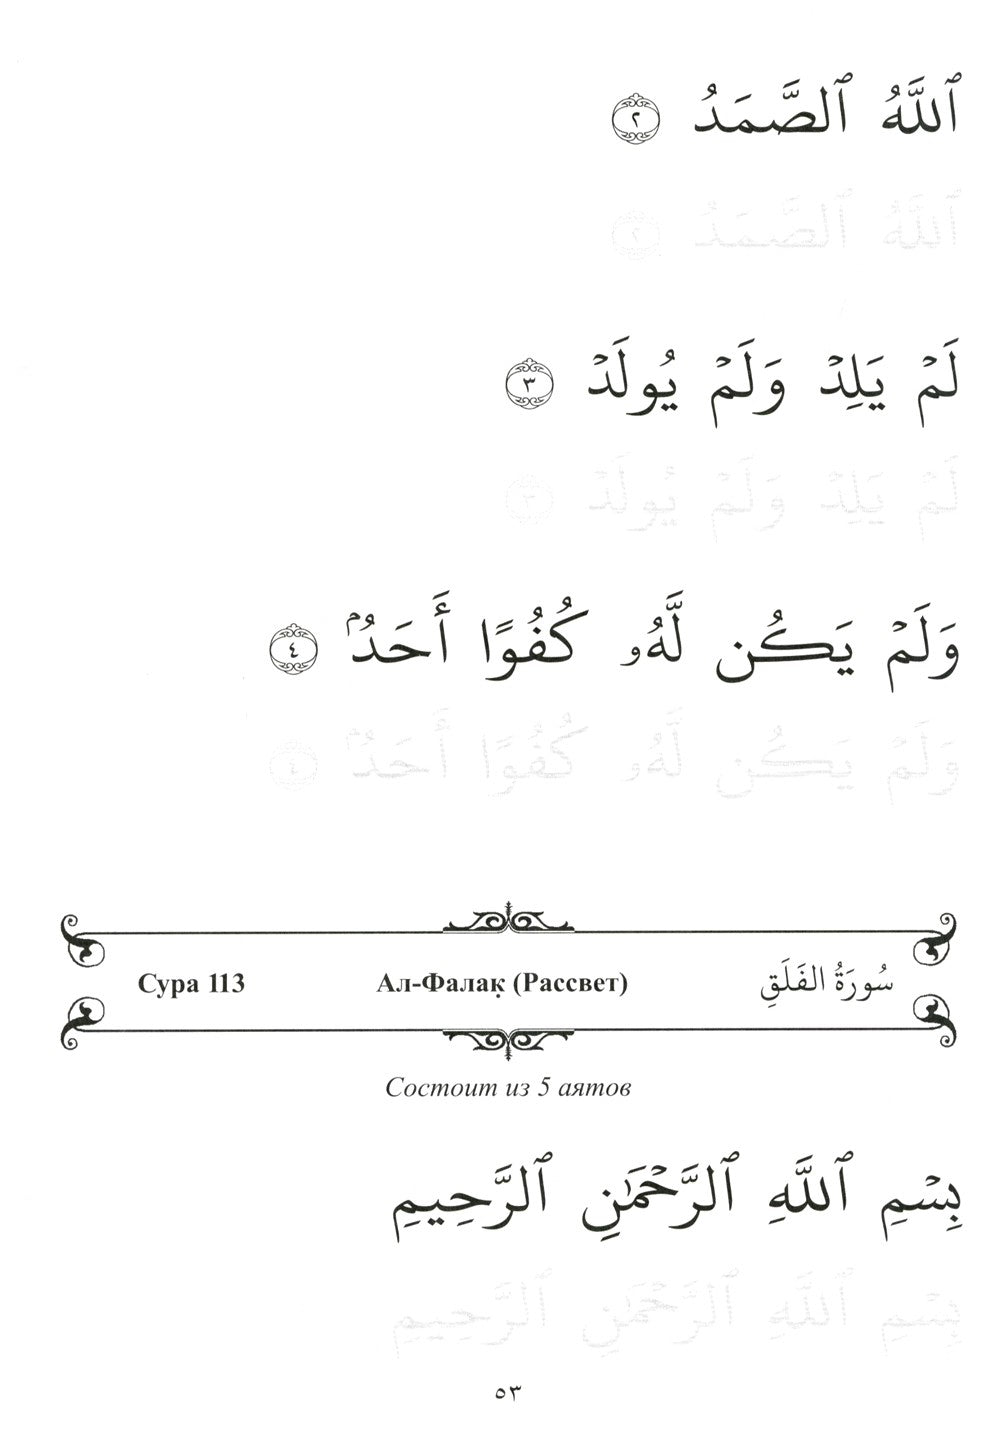 ٱللَّهُ ٱلصَّمَدُ ٢
ٱللَّهُ ٱلصَّمَدُ ٢
لَمْ يَلِدْ وَلَمْ يُولَدْ ٣
لَمْ يَلِدْ وَلَمْ يُولَدْ ٣
وَلَمْ يَكُن لَّهُۥ كُفُوًا أَحَدُۢ ٤
وَلَمْ يَكُن لَّهُۥ كُفُوًا أَحَدُۢ ٤
Сура 113 Ал-Фалақ (Рассвет) سُورَةُ الفَلَقِ
Состоит из 5 аятов
بِسْمِ ٱللَّهِ ٱلرَّحْمَٰنِ ٱلرَّحِيمِ
بِسْمِ ٱللَّهِ ٱلرَّحْمَٰنِ ٱلرَّحِيمِ
٥٣